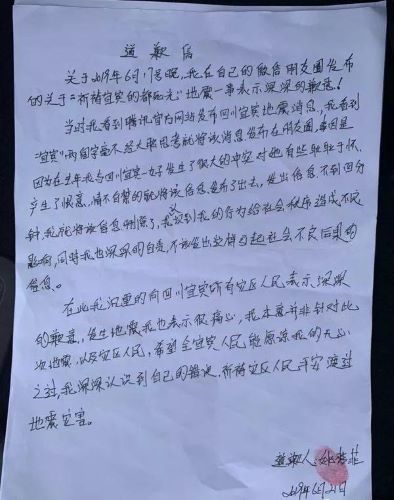 道歉信
关于2019年6月17号晚，我在自己的微信朋友圈发布
的关于“祈祷宜宾的都死光”地震一事表示深深的歉意！
当时我看到腾讯官方网站发布四川宜宾地震消息，我看到
“宜宾”两个字毫不经大脑思考就将该消息发布在朋友圈，原因是
因为在去年我与四川宜宾一女好发生了很大的冲突对他有些耿耿于怀
产生了恨意，情不自禁的就将该信息发布了出去，发出信息不到四分
钟，我就将该信息删除了，我意识到我的行为给社会秩序造成不良
影响，同时我也深深的自责，不该发出这样引起社会不良后果的
信息。
在此我沉重的向四川宜宾所有灾区人民表示深深
的歉意，发生地震我也表示很痛心，我本意并非针对此
次地震，以及灾区人民，希望全宜宾人民能原谅我的无心
之过，我深深认识到自己的错误，祈祷灾区人民平安渡过
地震灾害。
道歉人：
2019年6月21日